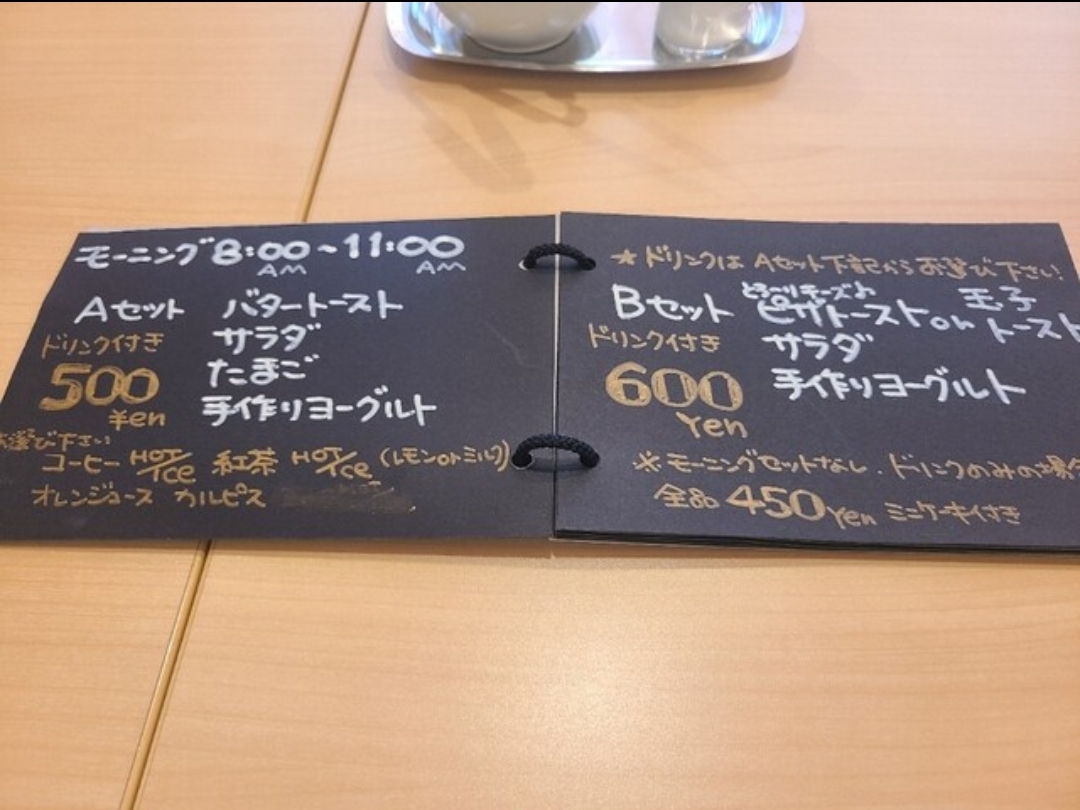 モーニング 8:00~11:00
AM AM
Aセット バタートースト
ドリンク付き サラダ
500 たまご
¥en 手作りヨーグルト
お選び下さい
コーヒー HOT/ICE 紅茶 HOT/ICE (レモンorミルク)
オレンジュース カルピス
★ドリンクは Aセット下記からお選び下さい!
Bセット とろ〜りチーズの ピザトースト or 玉子トースト
ドリンク付き サラダ
600 手作りヨーグルト
Yen
※モーニングセットなし、ドリンクのみの場合
全品 450Yen ミニケーキ付き